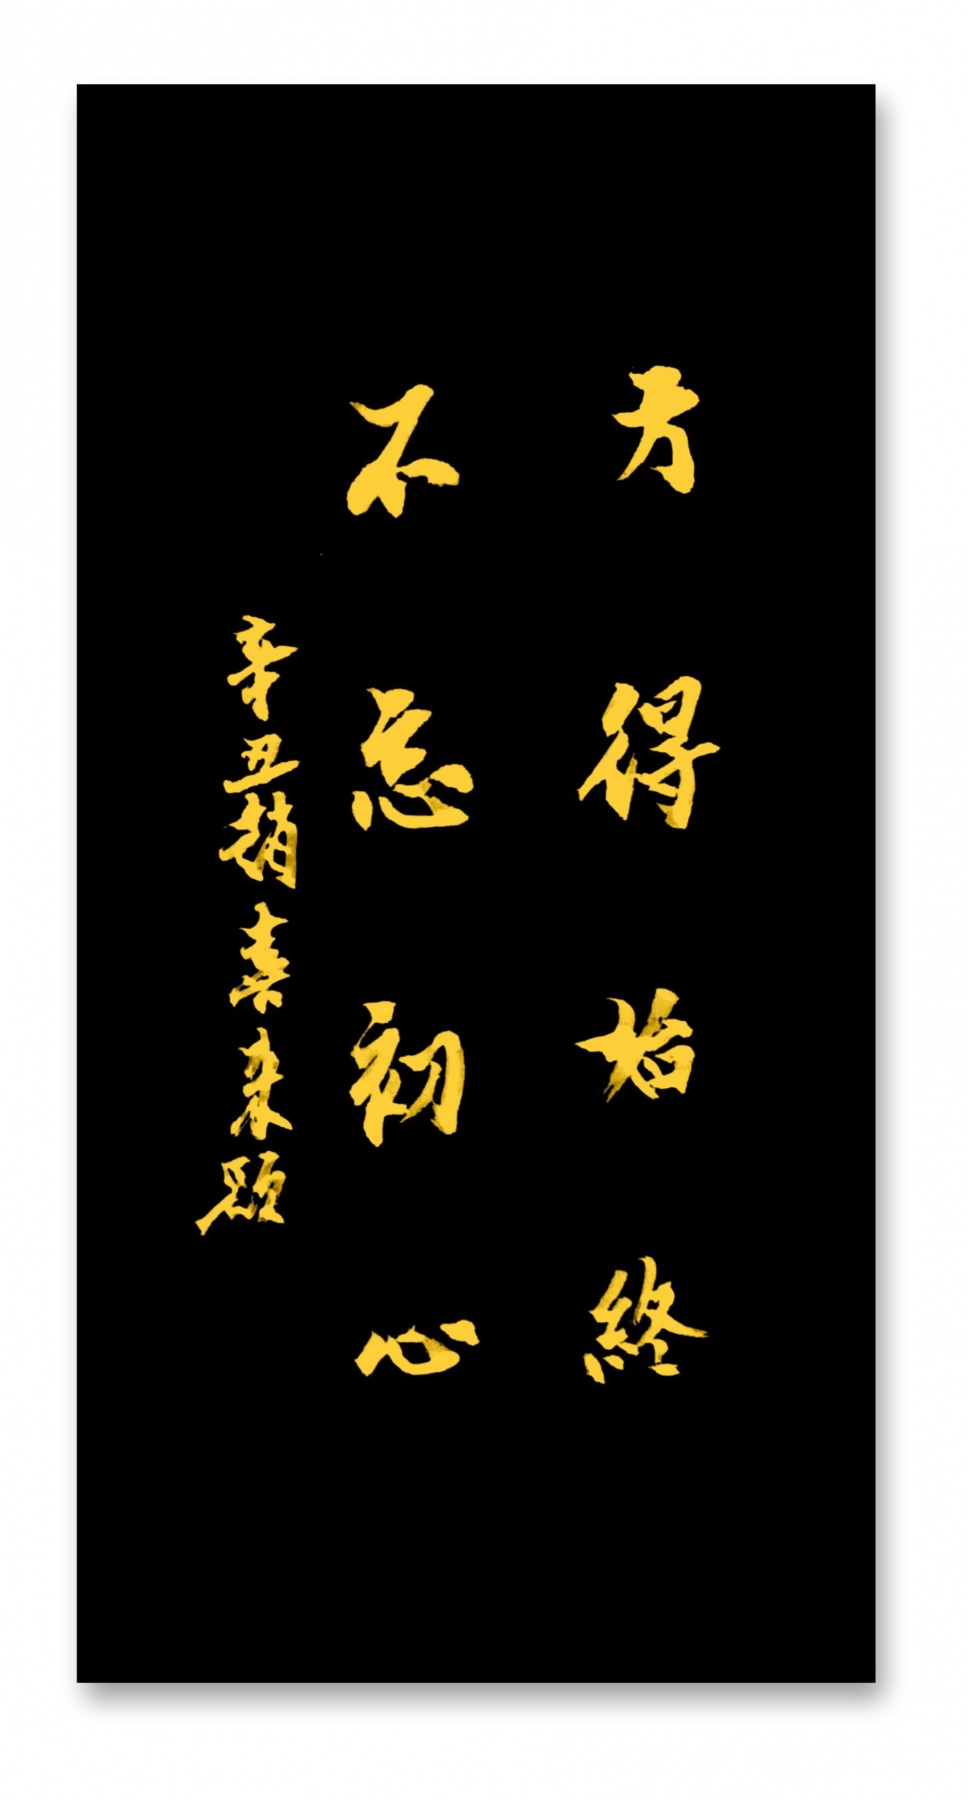 方得始終
不忘初心
辛丑趙喜來題